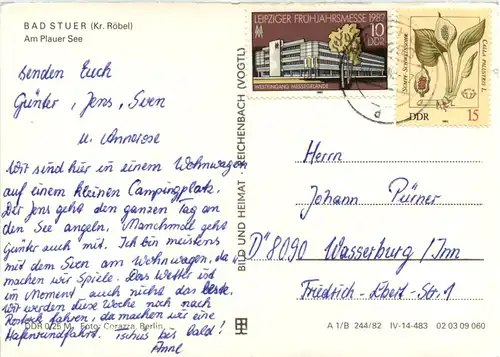 BAD STUER (Kr. Röbel)
Am Plauer See
senden Euch
Günter, Jens, Sven
u. Annerose
Wir sind hier in einem Wohnwagen
auf einem kleinen Campingplatz.
Der Jens geht den ganzen Tag an
den See angeln. Manchmal geht
Günter auch mit. Ich bin meistens
mit dem Sven am Wohnwagen, da
machen wir Spiele. Das Wetter ist
im Moment auch nicht das beste.
Wir werden diese Woche noch nach
Rostock fahren, da machen wir eine
Hafenrundfahrt. Tschüs bis bald!
Anne
DDR 0,25 M Foto: Corazza, Berlin
BILD UND HEIMAT · REICHENBACH (VOGTL)
LEIPZIGER FRÜHJAHRSMESSE 1982
10
DDR
WESTEINGANG MESSEGELÄNDE
CALLA PALUSTRIS L.
DDR
15
Herrn
Johann Pürner
D 8090 Wasserburg/Inn
Friedrich-Ebert-Str. 1
A 1/B 244/82 IV-14-483 02 03 09 060